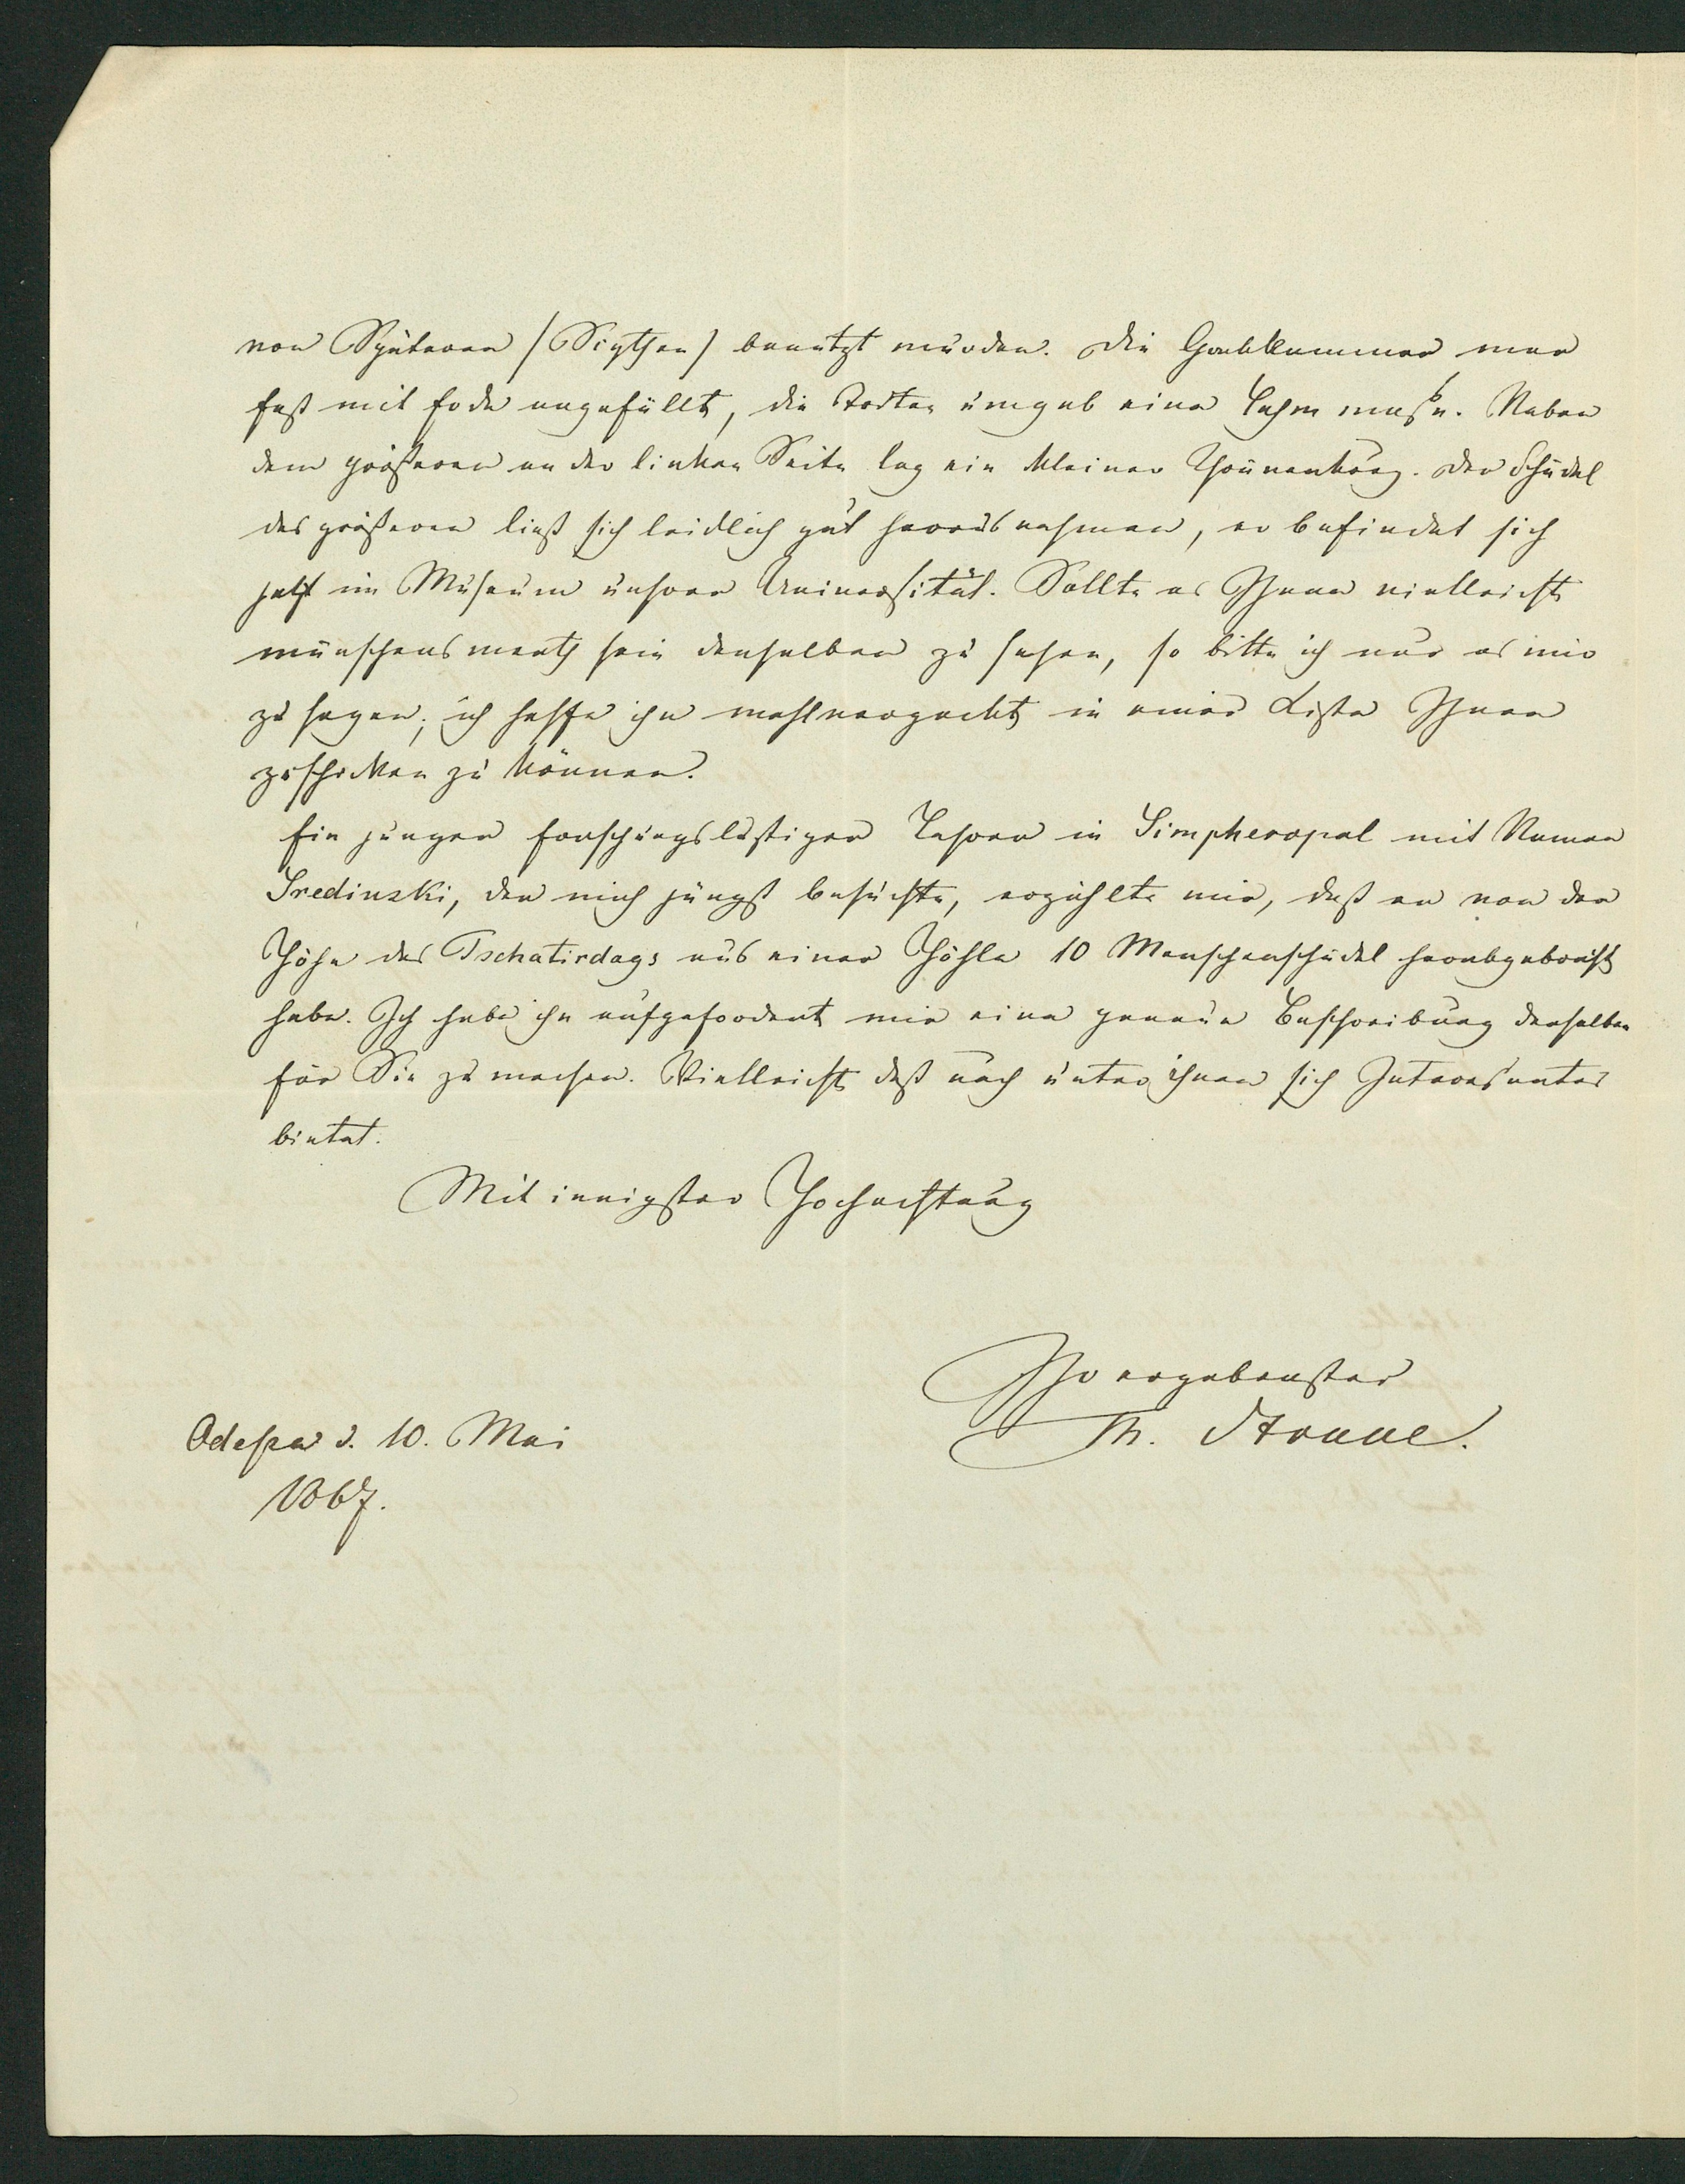 von Späteren (Scythen) benutzt wurden. Die Grabkammer war
fast mit Erde angefüllt, die Todten umgab eine Lehm masse. Neben
dem größeren an der linken Seite lag ein kleiner Thränenkrug. Der Schädel
des größeren ließ sich leidlich gut herausnehmen, er befindet sich
jetzt im Museum unserer Universität. Sollte es Ihnen vielleicht
wünschenswerth sein denselben zu sehen, so bitte ich nur es mir
zu sagen, ich hoffe ihn wohlverpackt in einer Kiste Ihnen
zuschicken zu können.
Ein junger forschungslustiger Lehrer in Simpheropol mit Namen
Sredinski, der mich jüngst besuchte, erzählte mir, daß er von der
Höhe des Tschatirdags aus einer Höhle 10 Menschenschädel herabgebracht
habe. Ich habe ihn aufgefordert mir eine genaue Beschreibung derselben
für Sie zu machen. Vielleicht daß auch unter ihnen sich Interessantes
bietet.
Mit innigster Hochachtung
Ihr ergebenster
Odessa d. 10. Mai
1867.